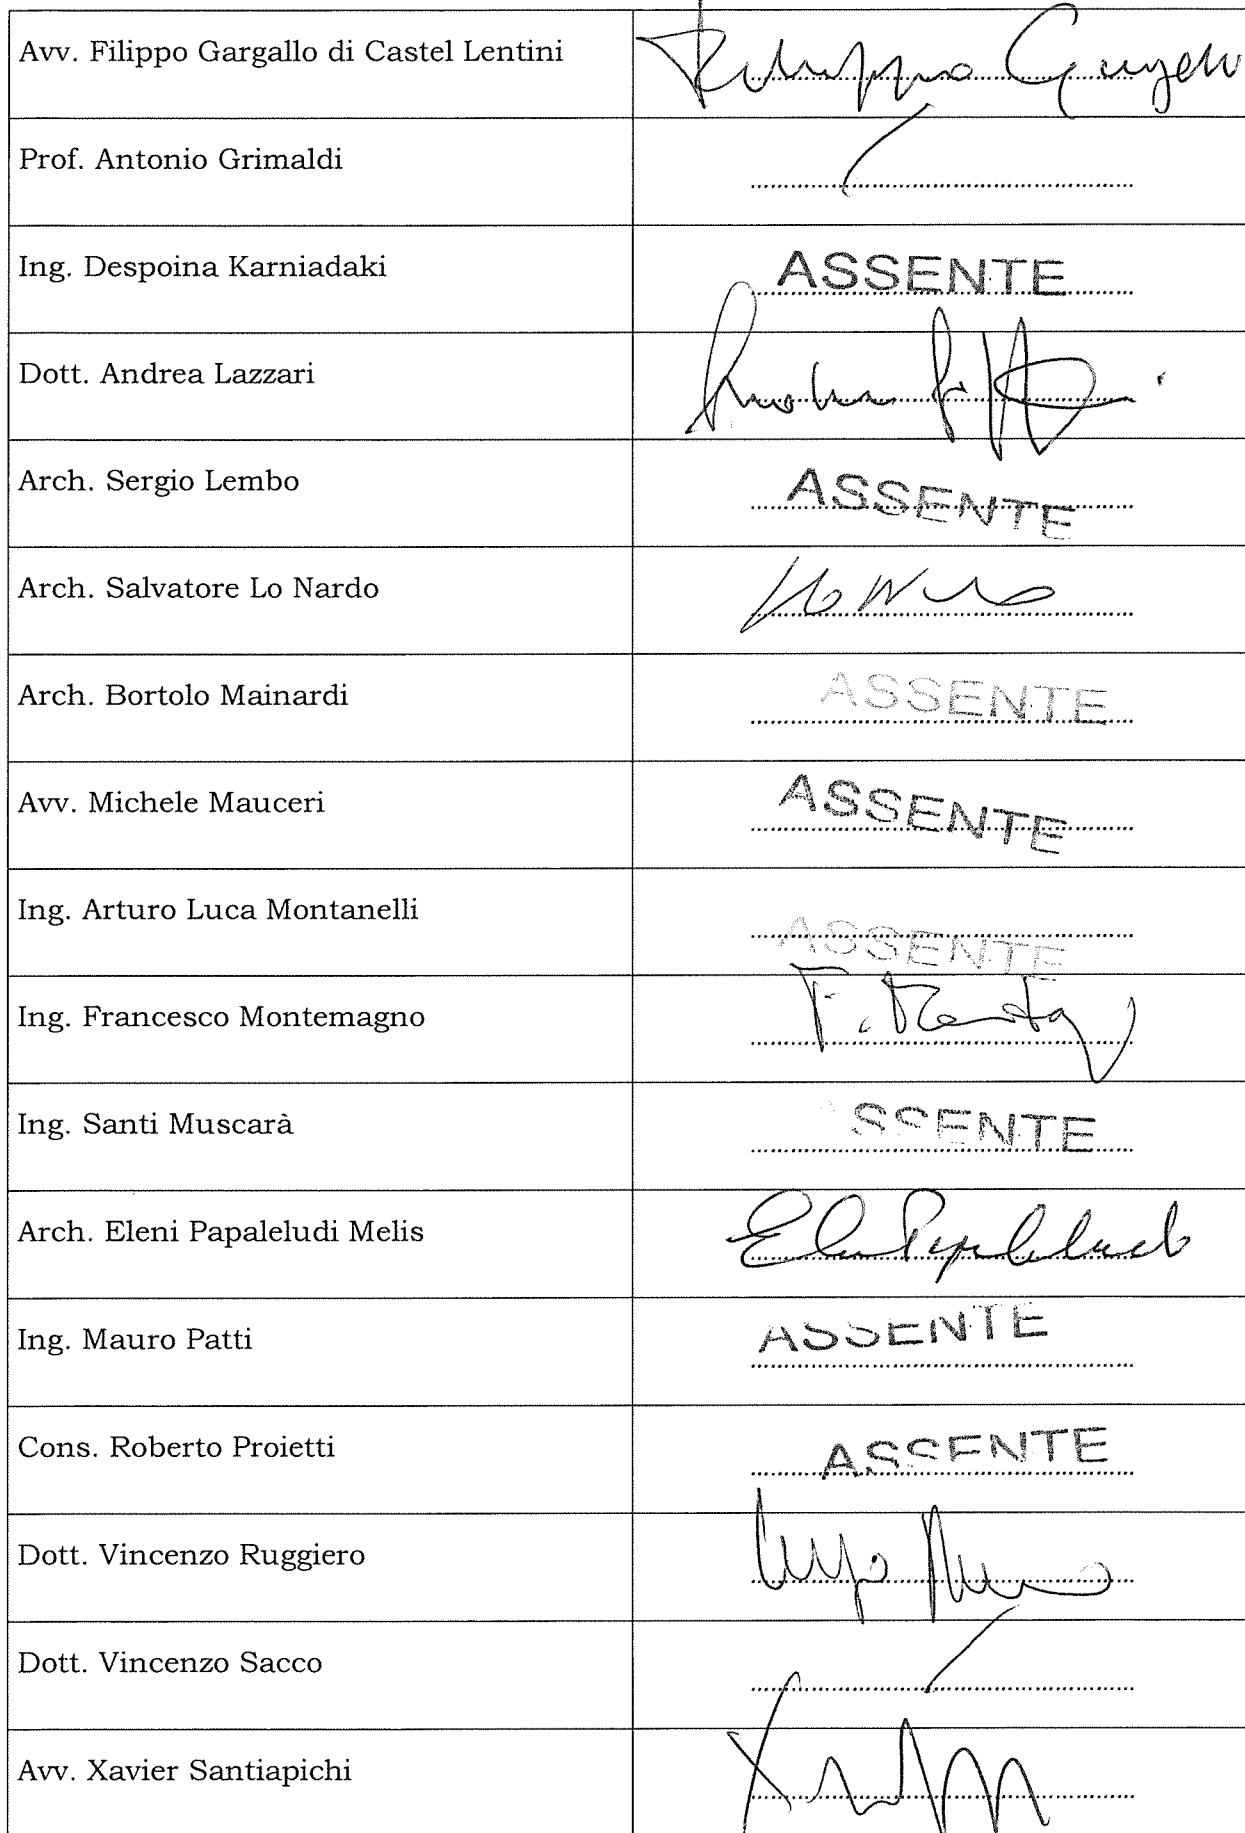 Avv. Filippo Gargallo di Castel Lentini
Filippo Gargallo
Prof. Antonio Grimaldi
Ing. Despoina Karniadaki
ASSENTE
Dott. Andrea Lazzari
Arch. Sergio Lembo
ASSENTE
Arch. Salvatore Lo Nardo
Arch. Bortolo Mainardi
ASSENTE
Avv. Michele Mauceri
ASSENTE
Ing. Arturo Luca Montanelli
ASSENTE
Ing. Francesco Montemagno
Ing. Santi Muscarà
SSENTE
Arch. Eleni Papaleludi Melis
Ing. Mauro Patti
ASSENTE
Cons. Roberto Proietti
ASSENTE
Dott. Vincenzo Ruggiero
Dott. Vincenzo Sacco
Avv. Xavier Santiapichi